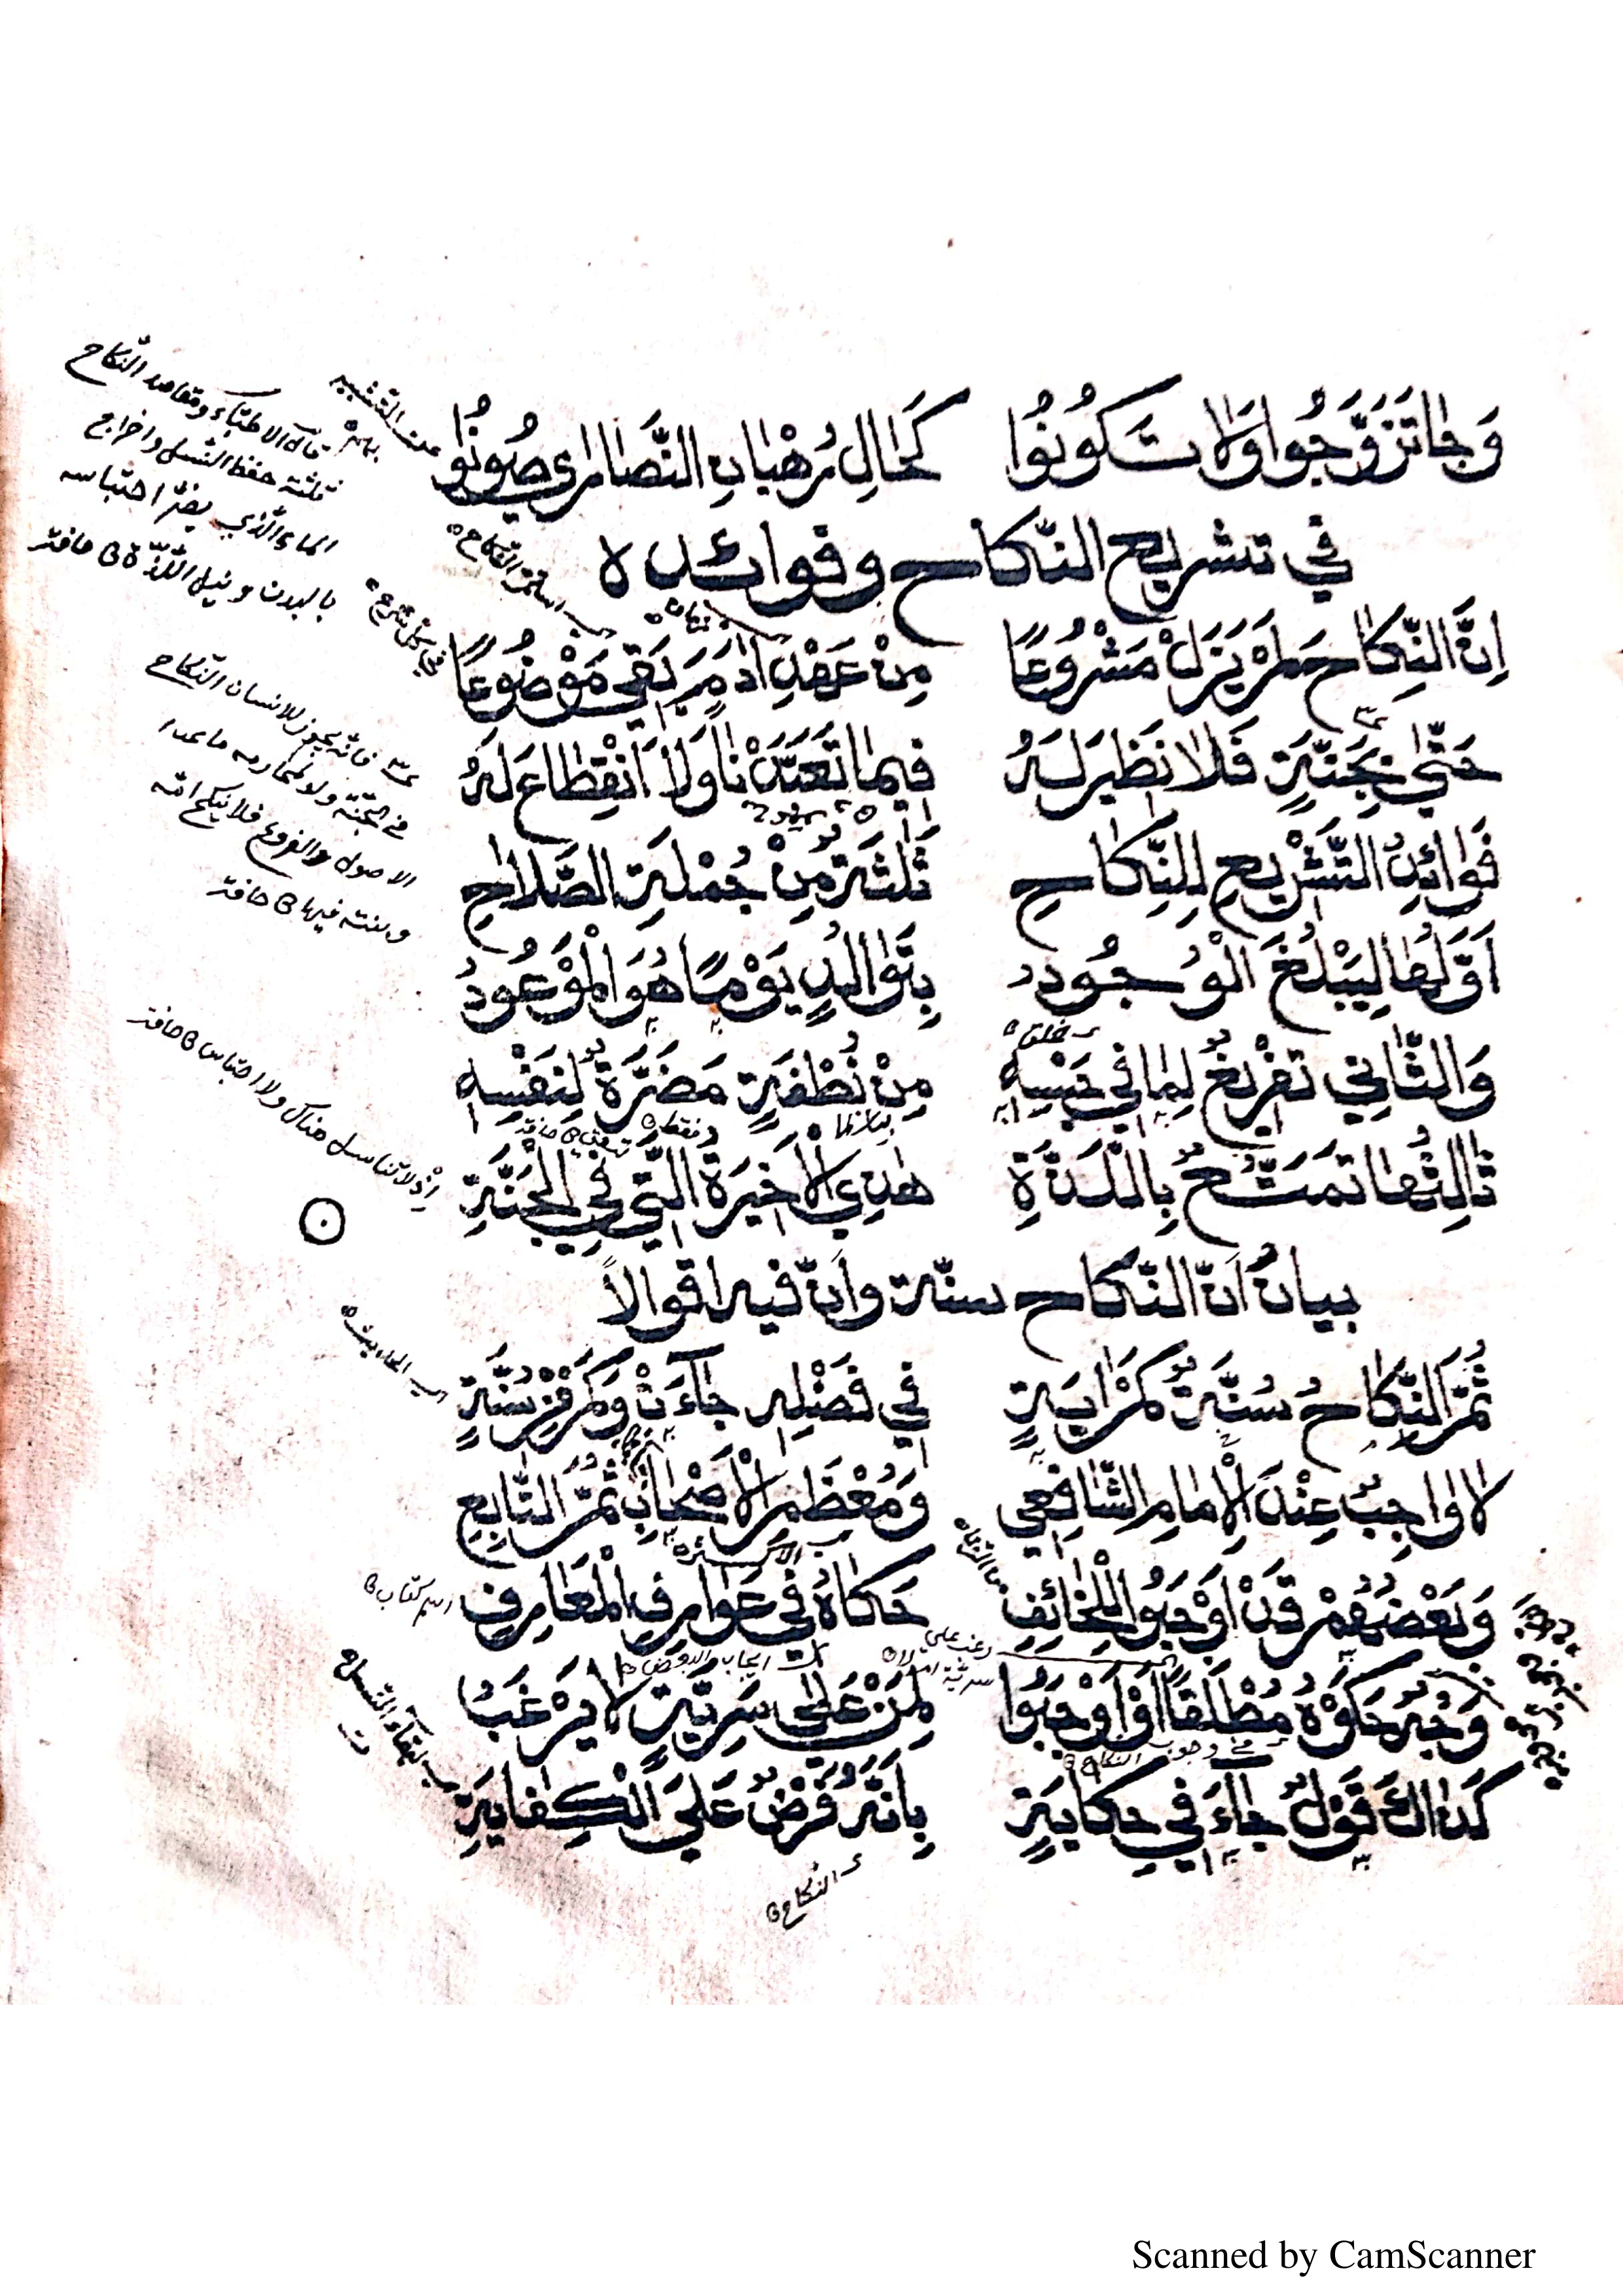 وَجَا تَزَوَّجُوا وَلَا تَكُونُوا كَحَالِ رُهْبَانِ النَّصَارٰى صُونُوا
في تشريع النّكاح وفوائده
اِنَّ النِّكَاحَ لَمْ يَزَلْ مَشْرُوعًا مِنْ عَهْدِ اٰدَمَ بَقِيَ مَوْضُوعًا
حَتّٰى بِجَنَّةٍ فَلَا نَظِيرَ لَهُ فِيمَا تَعَبَّدْنَا وَلَا اَنْقِطَاعَ لَهُ
فَوَائِدُ التَّشْرِيعِ لِلنِّكَاحِ ثَلٰثَةٌ مِنْ جُمْلَةِ الصَّلَاحِ
اَوَّلُهَا لِيَبْلُغَ الْوُجُودُ بِتَوَالُدٍ يَوْمًا هُوَ الْمَوْعُودُ
وَالثَّانِي تَفْرِيغٌ لِمَا فِي حَبْسِهِ مِنْ نُطْفَةٍ مَضَرَّةٌ لِنَفْسِهِ
ثَالِثُهَا تَمَتُّعٌ بِاللَّذَّةِ هٰذِي الْاَخِيرَةُ الَّتِي فِي الْجَنَّةِ
بيانُ اَنّ النّكاح سنّة وانّ فيه اقوالاً
ثُمَّ النِّكَاحُ سُنَّةٌ كَمْ اٰيَةٍ فِي فَضْلِهِ جَآءَتْ وَكَمْ مِنْ سُنَّةٍ
لَا وَاجِبٌ عِنْدَ الْاِمَامِ الشَّافِعِي وَمُعْظَمِ الْاَصْحَابِ ثُمَّ التَّابِعِ
وَبَعْضُهُمْ قَدْ اَوْجَبُوا لِلْخَائِفِ حَكَاهُ فِي عَوَارِفِ الْمَعَارِفِ
وَجْهٌ حَكَوْهُ مُطْلَقًا اَوْ اَوْجَبُوا لِمَنْ عَلٰى سَرِيَّةٍ لَا يَرْغَبُ
كَذَاكَ قَوْلٌ جَاءَ فِي حِكَايَةٍ بِاَنَّهُ فَرْضٌ عَلَى الْكِفَايَةِ
عن التشبيه بهم
قال الاطبّاء ومقاصد النّكاح
ثلثة حفظ النّسل واخراج
الماء الّذي يضرّ احتباسه
بالبدن ونيل اللّذّة
فانّه يجوز للانسان النّكاح
في الجنّة ولو لمحارمه ما عدا
الاصول والفروع فلا ينكح امّه
وبنته فيها
اذ لا تناسل هناك ولا احتباس
اسم كتاب
في وجوب النكاح
النكاح
Scanned by CamScanner